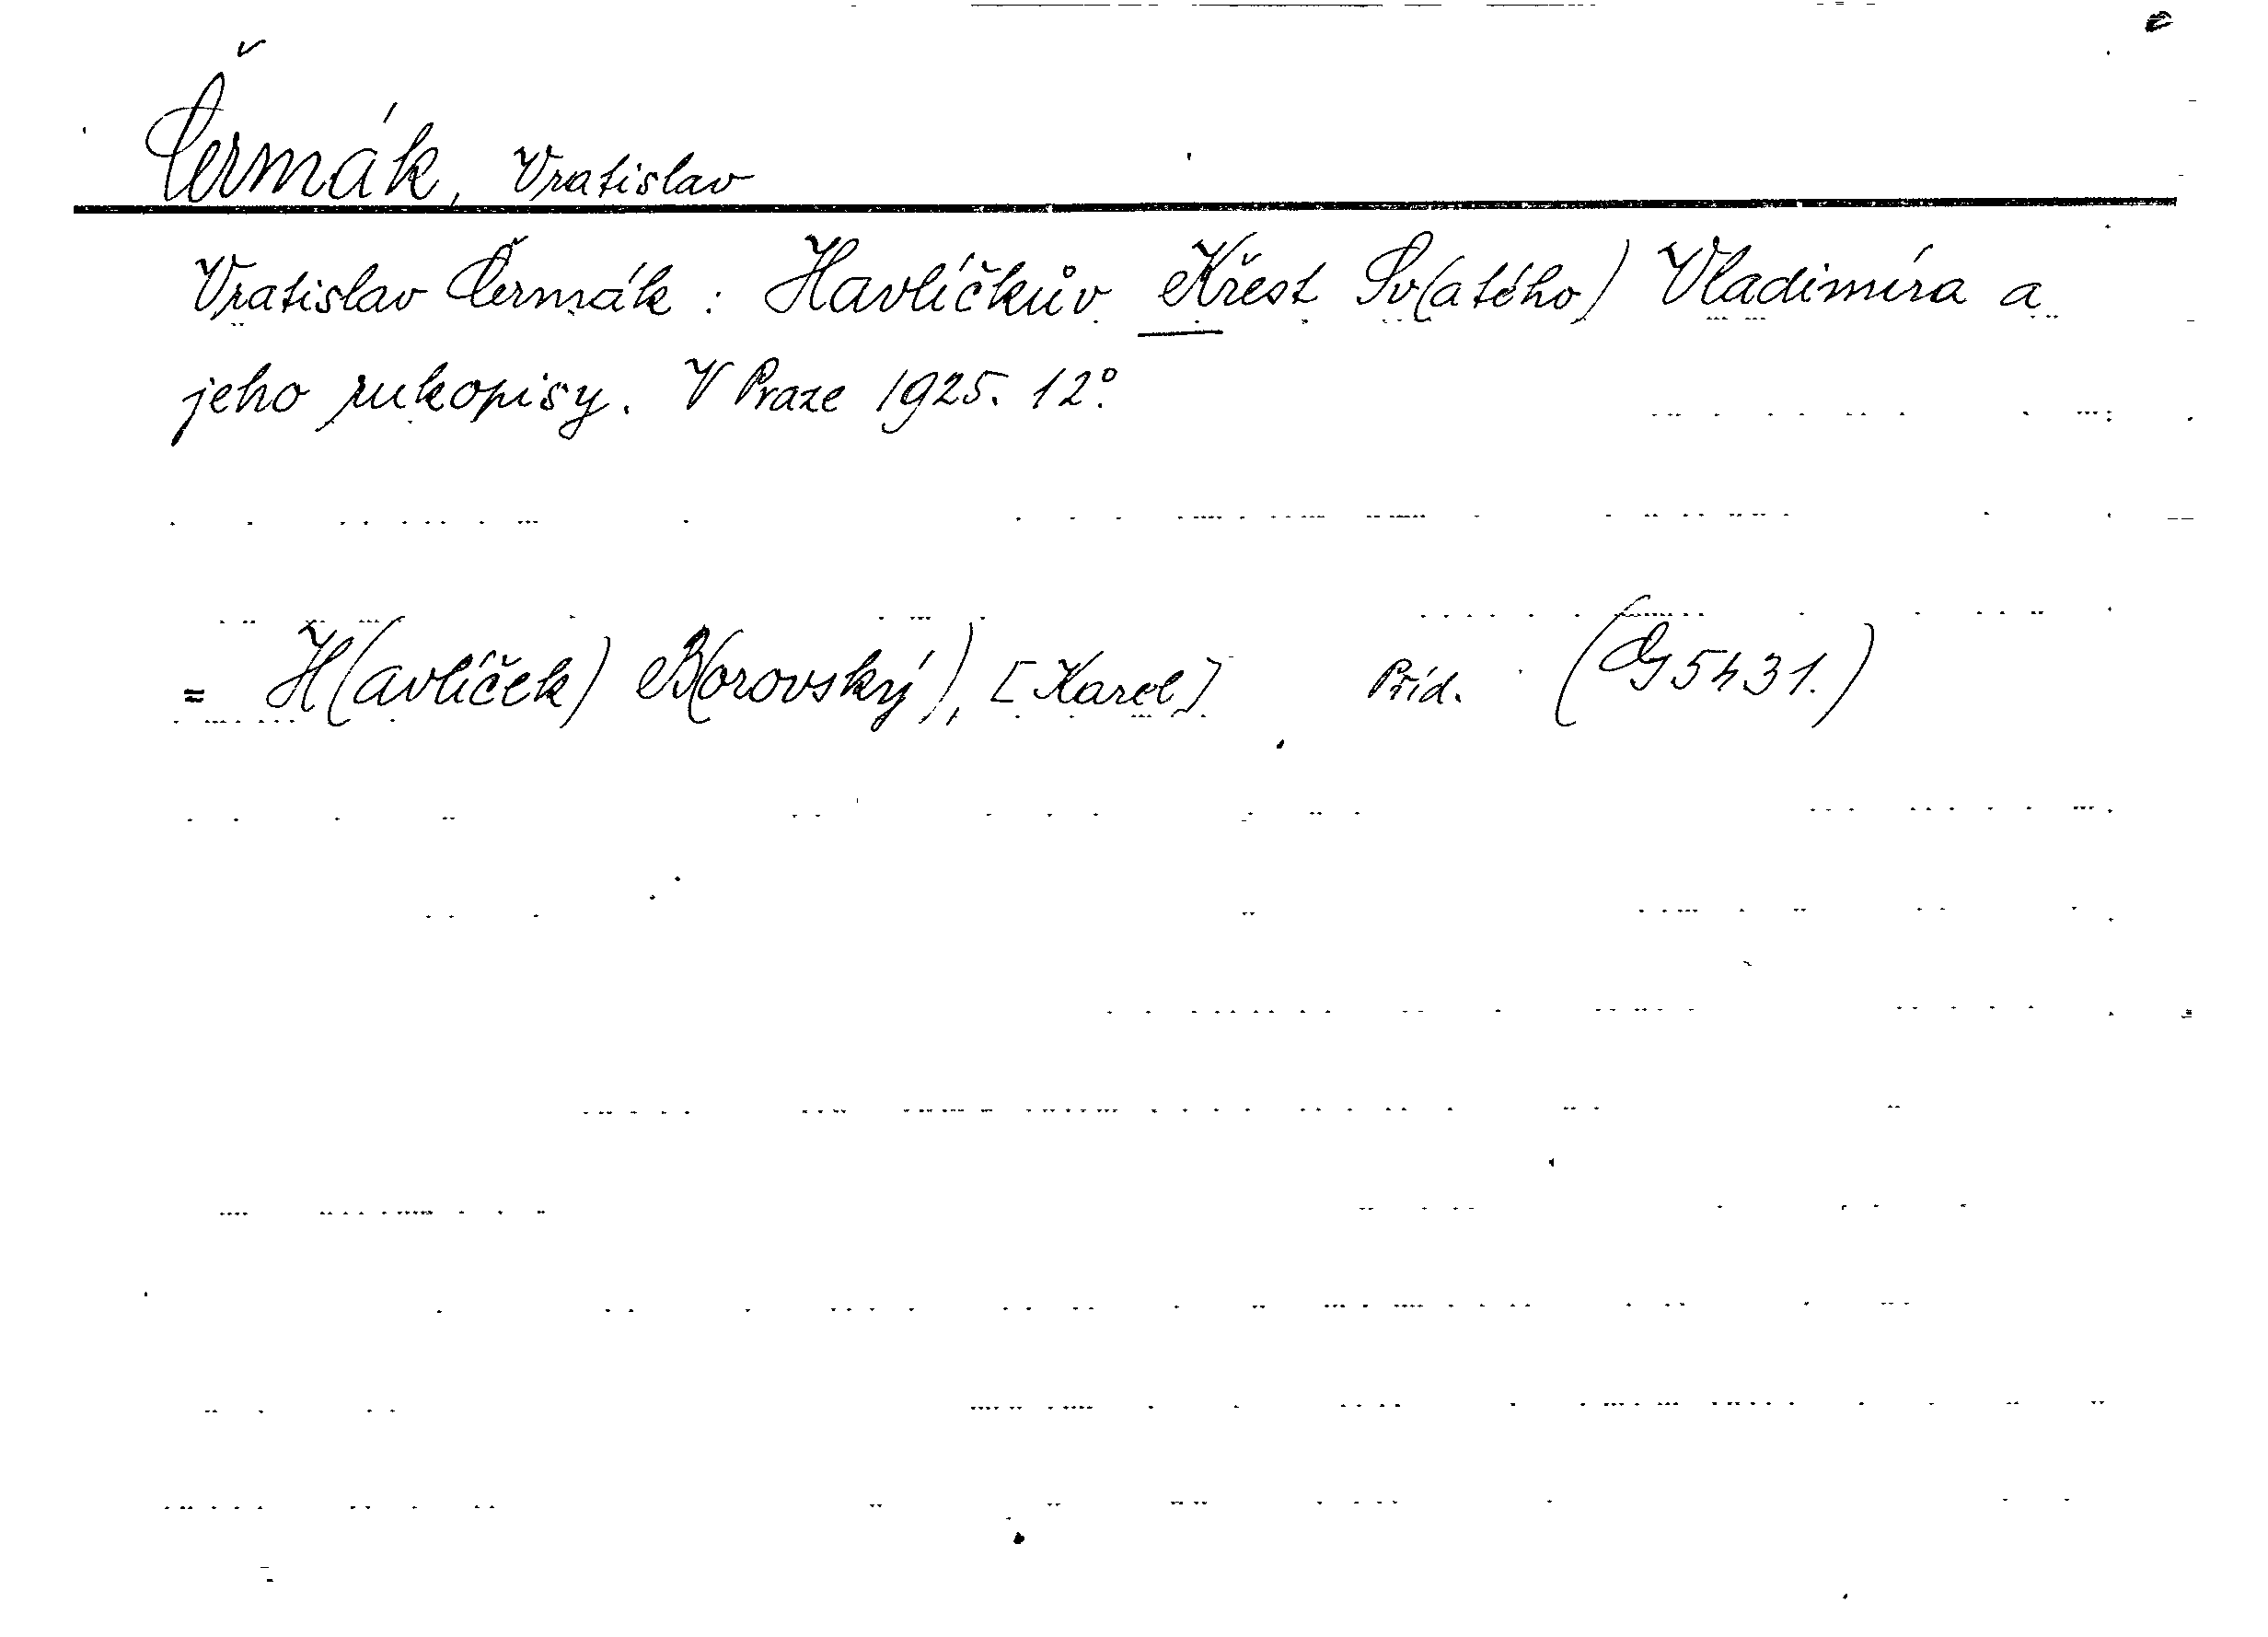 Čermák, Vratislav
Vratislav Čermák : Havlíčkův Křest Sv(atého) Vladimíra a
jeho rukopisy. V Praze 1925. 12°.
= H(avlíček) B(orovský), [Karel] Příd. (Dg 5431.)